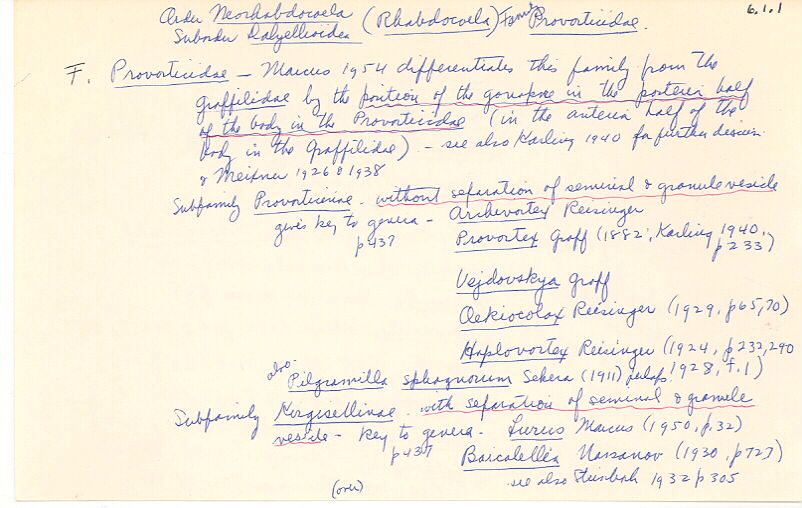 6.1.1
Order Neorhabdocoela (Rhabdocoela) Family Provorticidae.
Suborder Dalyellioidea
F. Provorticidae – Marcus 1954 differentiates this family from the
Graffilidae by the position of the gonopore in the posterior half
of the body in the Provorticidae (in the anterior half of the
body in the Graffilidae) – see also Karling 1940 for further discussion
& Meixner 1926 & 1938
Subfamily Provorticinae – without separation of seminal & granule vesicle
gives key to genera – Archevortex Reisinger
p437
Provortex Graff (1882; Karling 1940, p233)
Vejdovskya Graff
Oekiocolax Reisinger (1929, p65,70)
Haplovortex Reisinger (1924, p232,290
1928, f.1)
also – Pilgramilla sphagnorum Sekera (1911) perhaps.
Subfamily Kirgisellinae – with separation of seminal & granule
vesicle – key to genera – Lurus Marcus (1950, p.32)
p437
Baicalellia Nassonov (1930, p727)
see also Steinböck 1932 p305
(over)